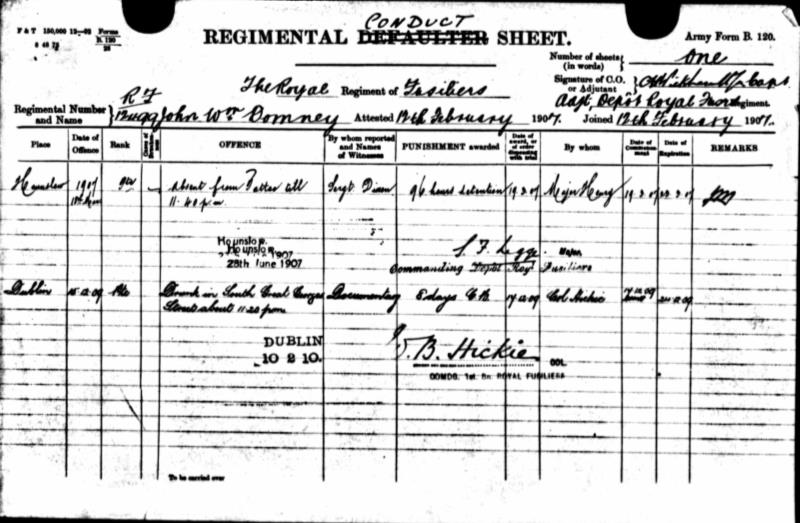 CONDUCT
REGIMENTAL DEFAULTER SHEET.
Army Form B. 120.
F & T 150,000 Forms
B. 120
Number of sheets (in words) one
The Royal Regiment of Fusiliers
Signature of C.O. or Adjutant
Adjt Depôt Royal Regiment.
R F
Regimental Number and Name John Wm Domney Attested 12th February 1907. Joined 12th February 1907.
Place Date of Offence Rank OFFENCE By whom reported and Names of Witnesses PUNISHMENT awarded By whom Date of Expiration REMARKS
Hounslow 1907 Pte Absent from Tattoo till Sergt Dixon 96 hours detention 19.2.07 Major 19.2.07 22.2.07
11.40 pm
Hounslow.
Hounslow.
28th June 1907
S. F. Legge Major
Commanding Depôt Royl Fusiliers
Dublin 15.12.09 Pte Drunk in South Great Georges Documentary 8 days C.B. 17.12.09 Col Hickie 24.12.09
Street about 11.20 pm
DUBLIN
10 2 10.
B. Hickie COL
COMDG. 1st. Bn. ROYAL FUSILIERS
To be carried over